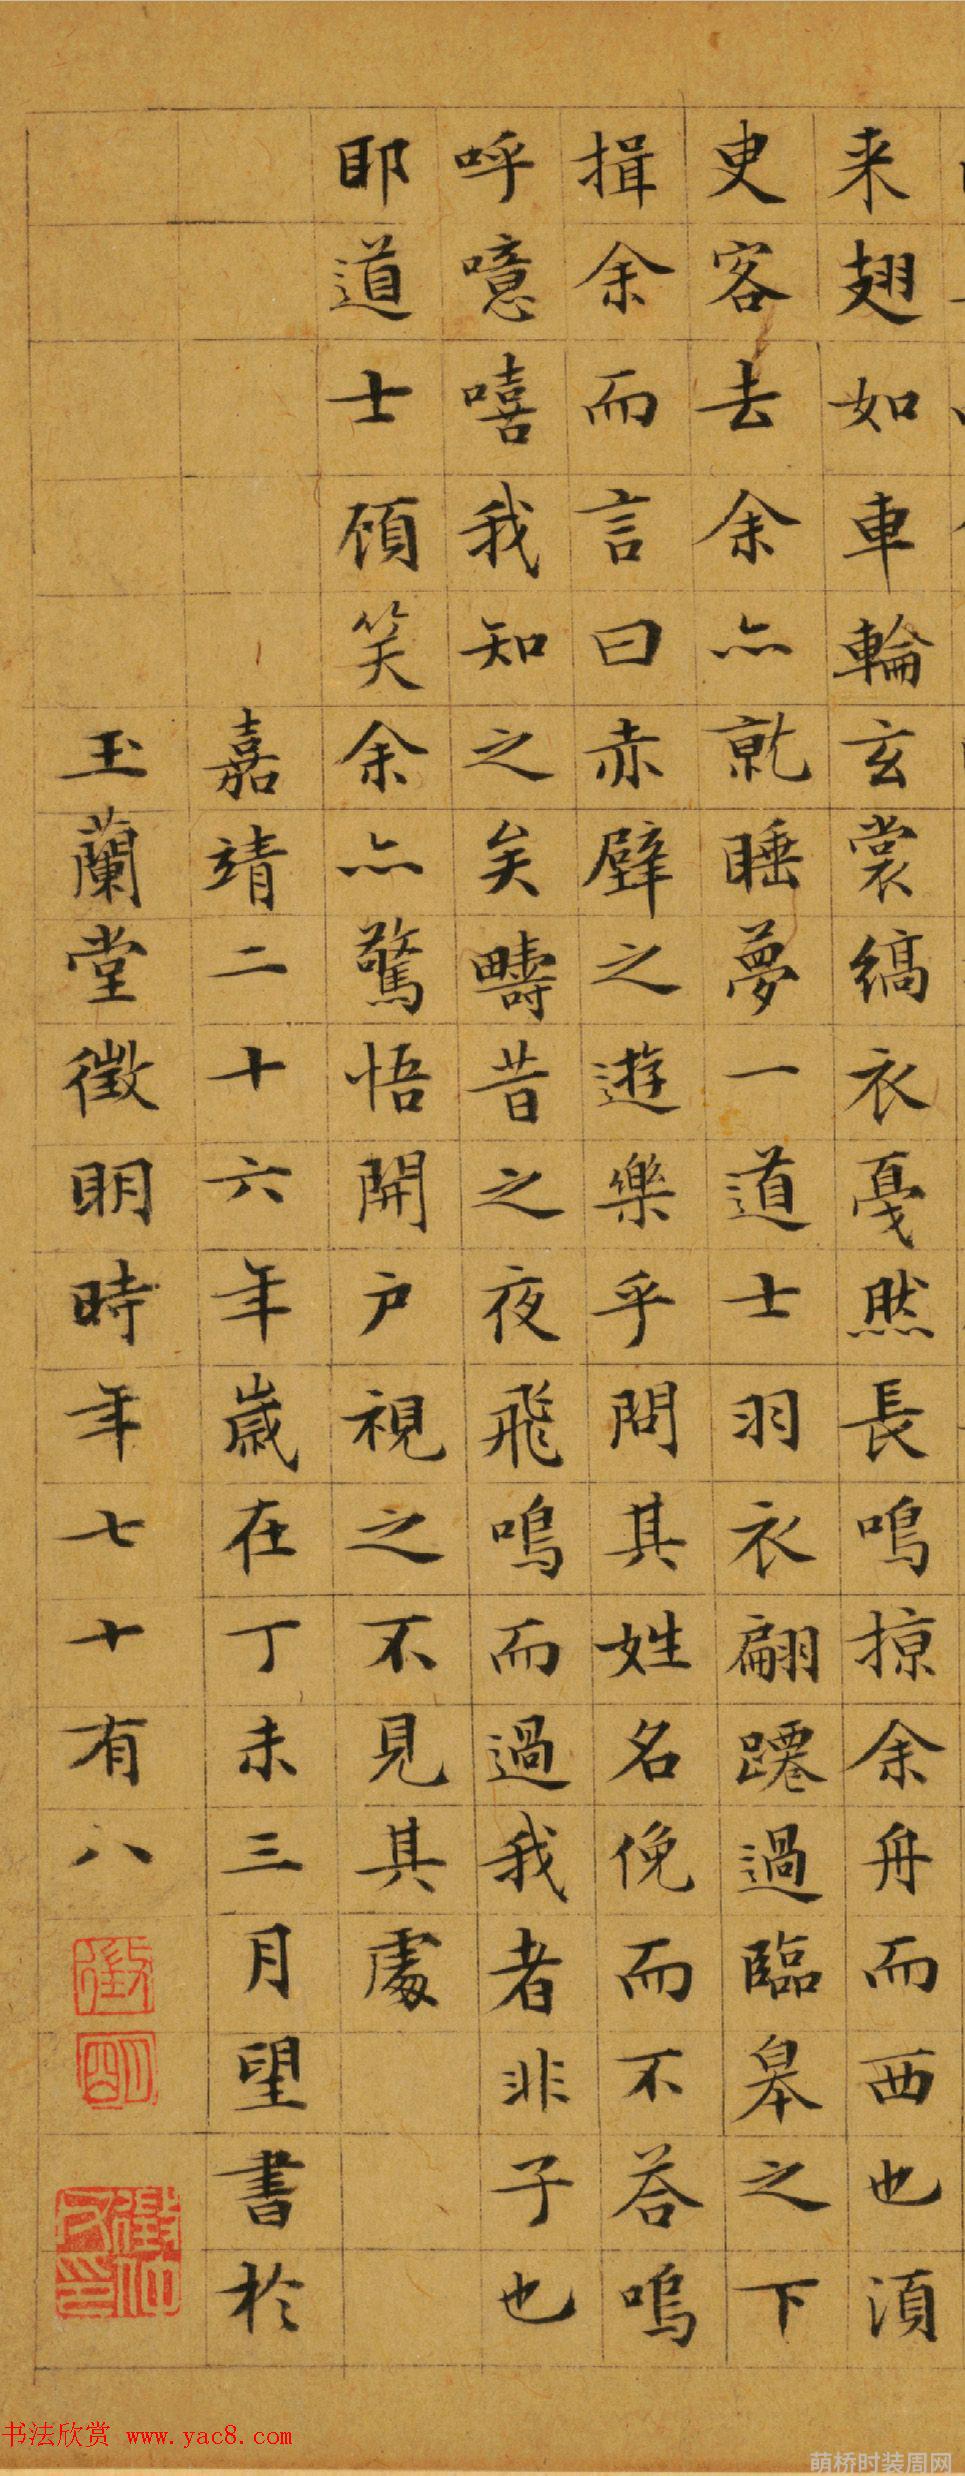 来翅如車輪玄裳縞衣戛然長鳴掠余舟而西也湏
臾客去余亦就睡夢一道士羽衣翩躚過臨皋之下
揖余而言曰赤壁之遊樂乎問其姓名俛而不荅嗚
呼噫嘻我知之矣疇昔之夜飛鳴而過我者非子也
耶道士顧笑余亦驚悟開户視之不見其處
嘉靖二十六年歲在丁未三月望書於
玉蘭堂徵明時年七十有八
徵
明
书法欣赏 www.yac8.com
萌桥时装周网